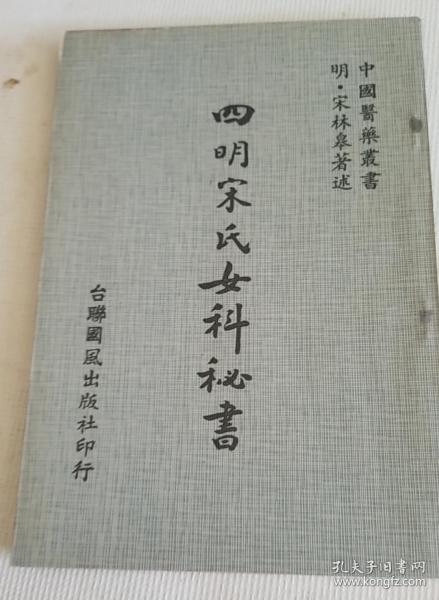 中國醫藥叢書
明·宋林皋著述
四明宋氏女科秘書
台聯國風出版社印行
孔夫子旧书网
kongfz.com